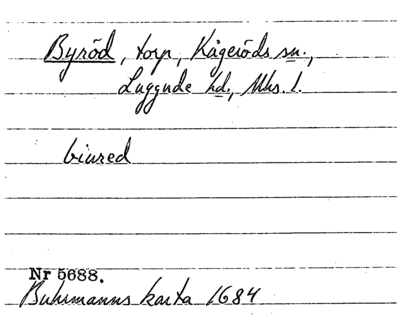 Byröd, torp, Kågeröds sn.,
Luggude hd., Mhs. l.
biured
Nr 5688.
Buhrmanns karta 1684